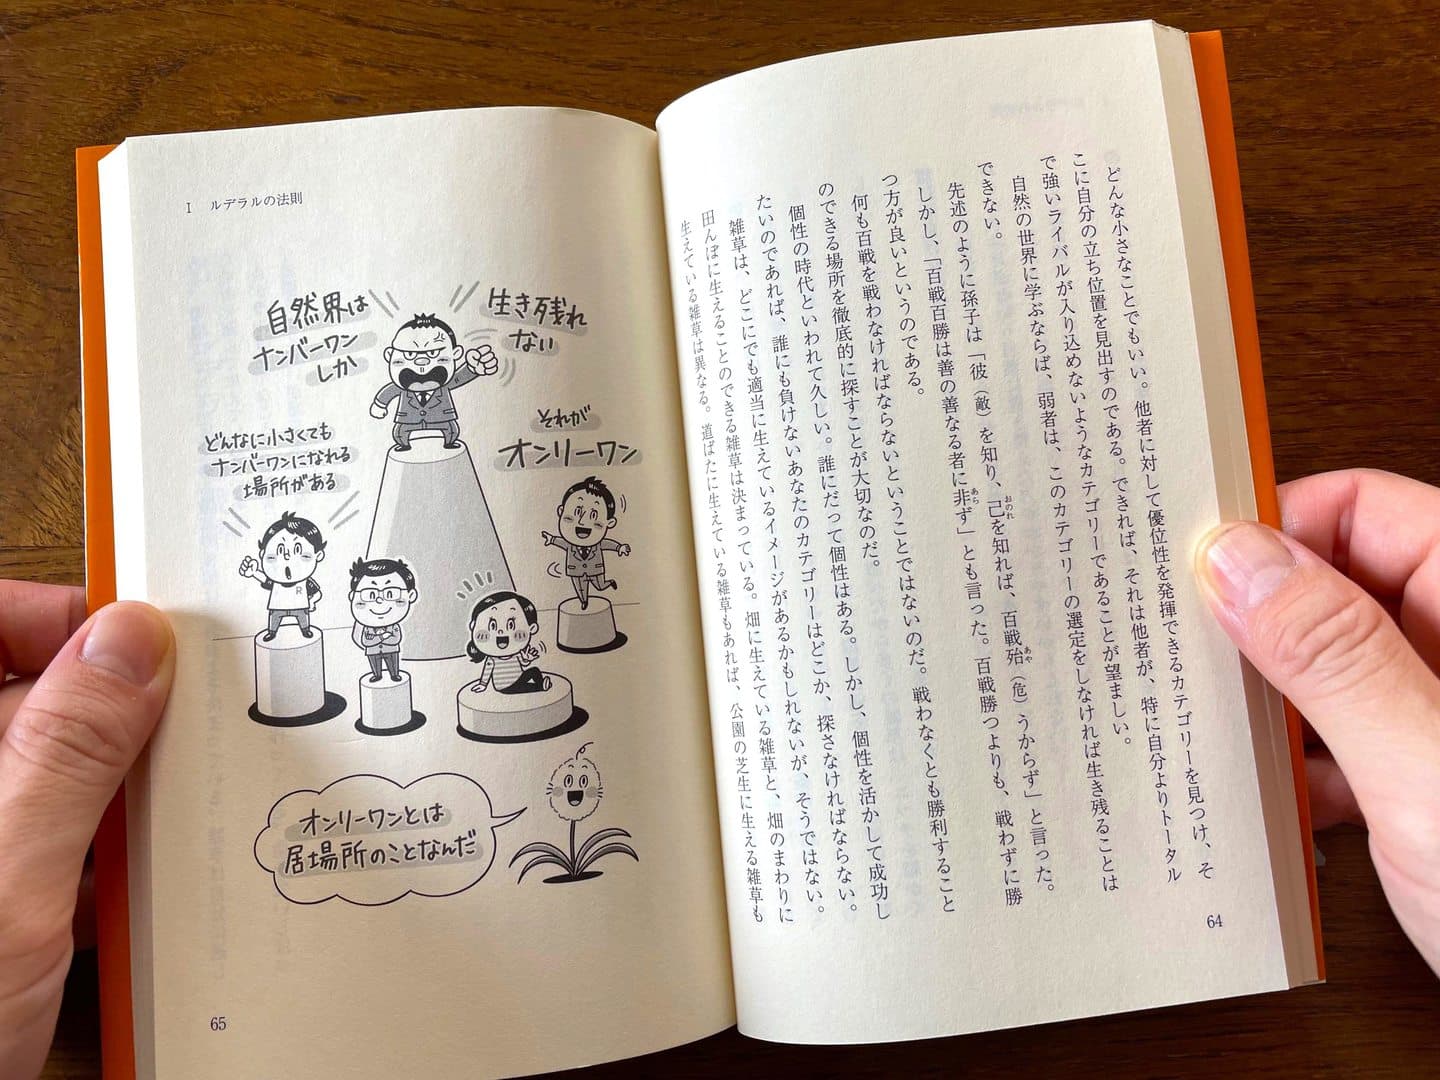 どんな小さなことでもいい。他者に対して優位性を発揮できるカテゴリーを見つけ、そ
こに自分の立ち位置を見出すのである。できれば、それは他者が、特に自分よりトータル
で強いライバルが入り込めないようなカテゴリーであることが望ましい。
自然の世界に学ぶならば、弱者は、このカテゴリーの選定をしなければ生き残ることは
できない。
先述のように孫子は「彼（敵）を知り、己を知れば、百戦殆（危）うからず」と言った。
おのれ
あや
しかし、「百戦百勝は善の善なる者に非ず」とも言った。百戦勝つよりも、戦わずに勝
あら
つ方が良いというのである。
何も百戦を戦わなければならないということではないのだ。戦わなくとも勝利すること
のできる場所を徹底的に探すことが大切なのだ。
個性の時代といわれて久しい。誰にだって個性はある。しかし、個性を活かして成功し
たいのであれば、誰にも負けないあなたのカテゴリーはどこか、探さなければならない。
雑草は、どこにでも適当に生えているイメージがあるかもしれないが、そうではない。
田んぼに生えることのできる雑草は決まっている。畑に生えている雑草と、畑のまわりに
生えている雑草は異なる。道ばたに生えている雑草もあれば、公園の芝生に生える雑草も
64
I ルデラルの法則
自然界は
ナンバーワン
しか
生き残れ
ない
それが
オンリーワン
どんなに小さくても
ナンバーワンになれる
場所がある
R
オンリーワンとは
居場所のことなんだ
65